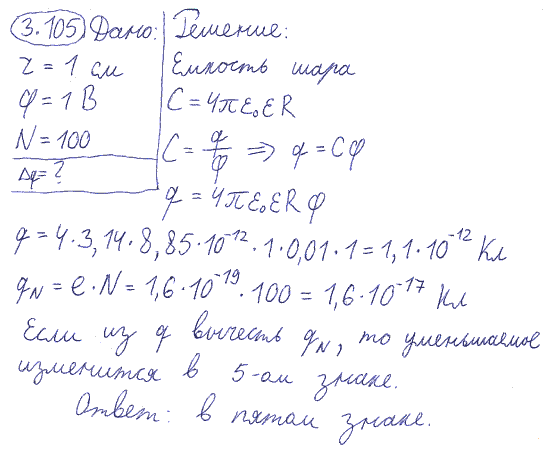 3.105 Дано: Решение:
r = 1 см Емкость шара
φ = 1 В C = 4πε₀εR
N = 100 C = q/φ ⇒ q = Cφ
Δq = ? q = 4πε₀εRφ
q = 4·3,14·8,85·10⁻¹²·1·0,01·1 = 1,1·10⁻¹² Кл
q_N = e·N = 1,6·10⁻¹⁹·100 = 1,6·10⁻¹⁷ Кл
Если из q вычесть q_N, то уменьшаемое
изменится в 5-ом знаке.
Ответ: в пятом знаке.